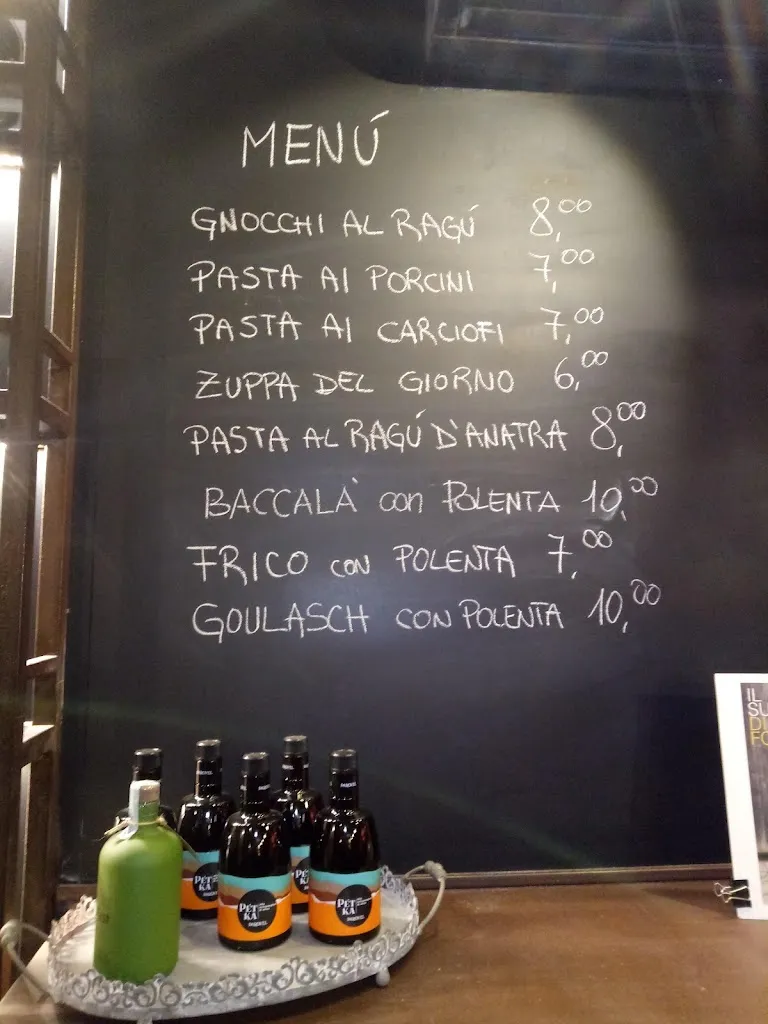 MENÚ
GNOCCHI AL RAGÚ 8,00
PASTA AI PORCINI 7,00
PASTA AI CARCIOFI 7,00
ZUPPA DEL GIORNO 6,00
PASTA AL RAGÚ D'ANATRA 8,00
BACCALÀ con POLENTA 10,00
FRICO con POLENTA 7,00
GOULASCH CON POLENTA 10,00
IL
PÉT
KA
PÉT
KA